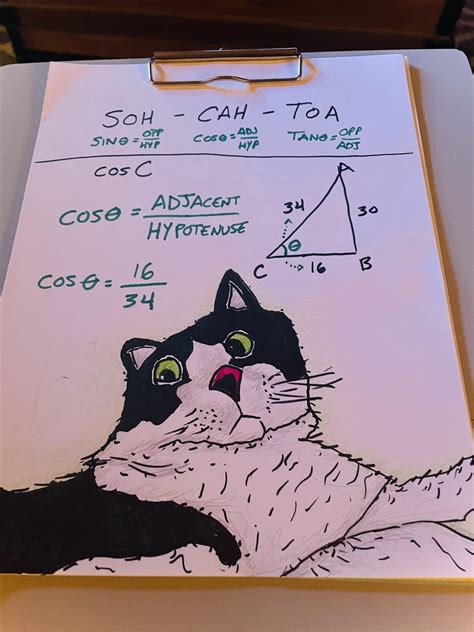 SOH - CAH - TOA
SINΘ = OPP/HYP COSΘ = ADJ/HYP TANΘ = OPP/ADJ
COS C
COSΘ = ADJACENT/HYPOTENUSE
A
34
30
Θ
C
16
B
COSΘ = 16/34